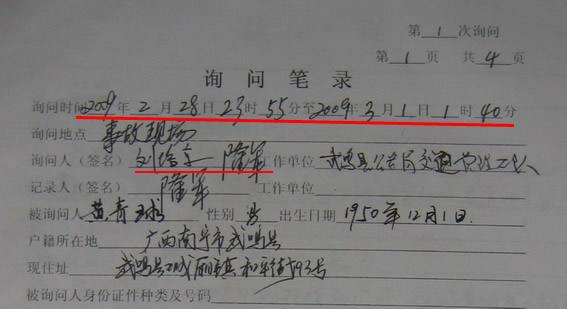 第 1 次询问
第 1 页 共 4 页
询问笔录
询问时间 2009 年 2 月 28 日 23 时 55 分至 2009 年 3 月 1 日 1 时 40 分
询问地点 事故现场
询问人（签名） 隆军 工作单位 武鸣县公安局交通管理大队
记录人（签名） 隆军 工作单位
被询问人 黄青球 性别 男 出生日期 1950年12月1日
户籍所在地 广西南宁市武鸣县
现住址 武鸣县城厢镇和平街93号
被询问人身份证件种类及号码